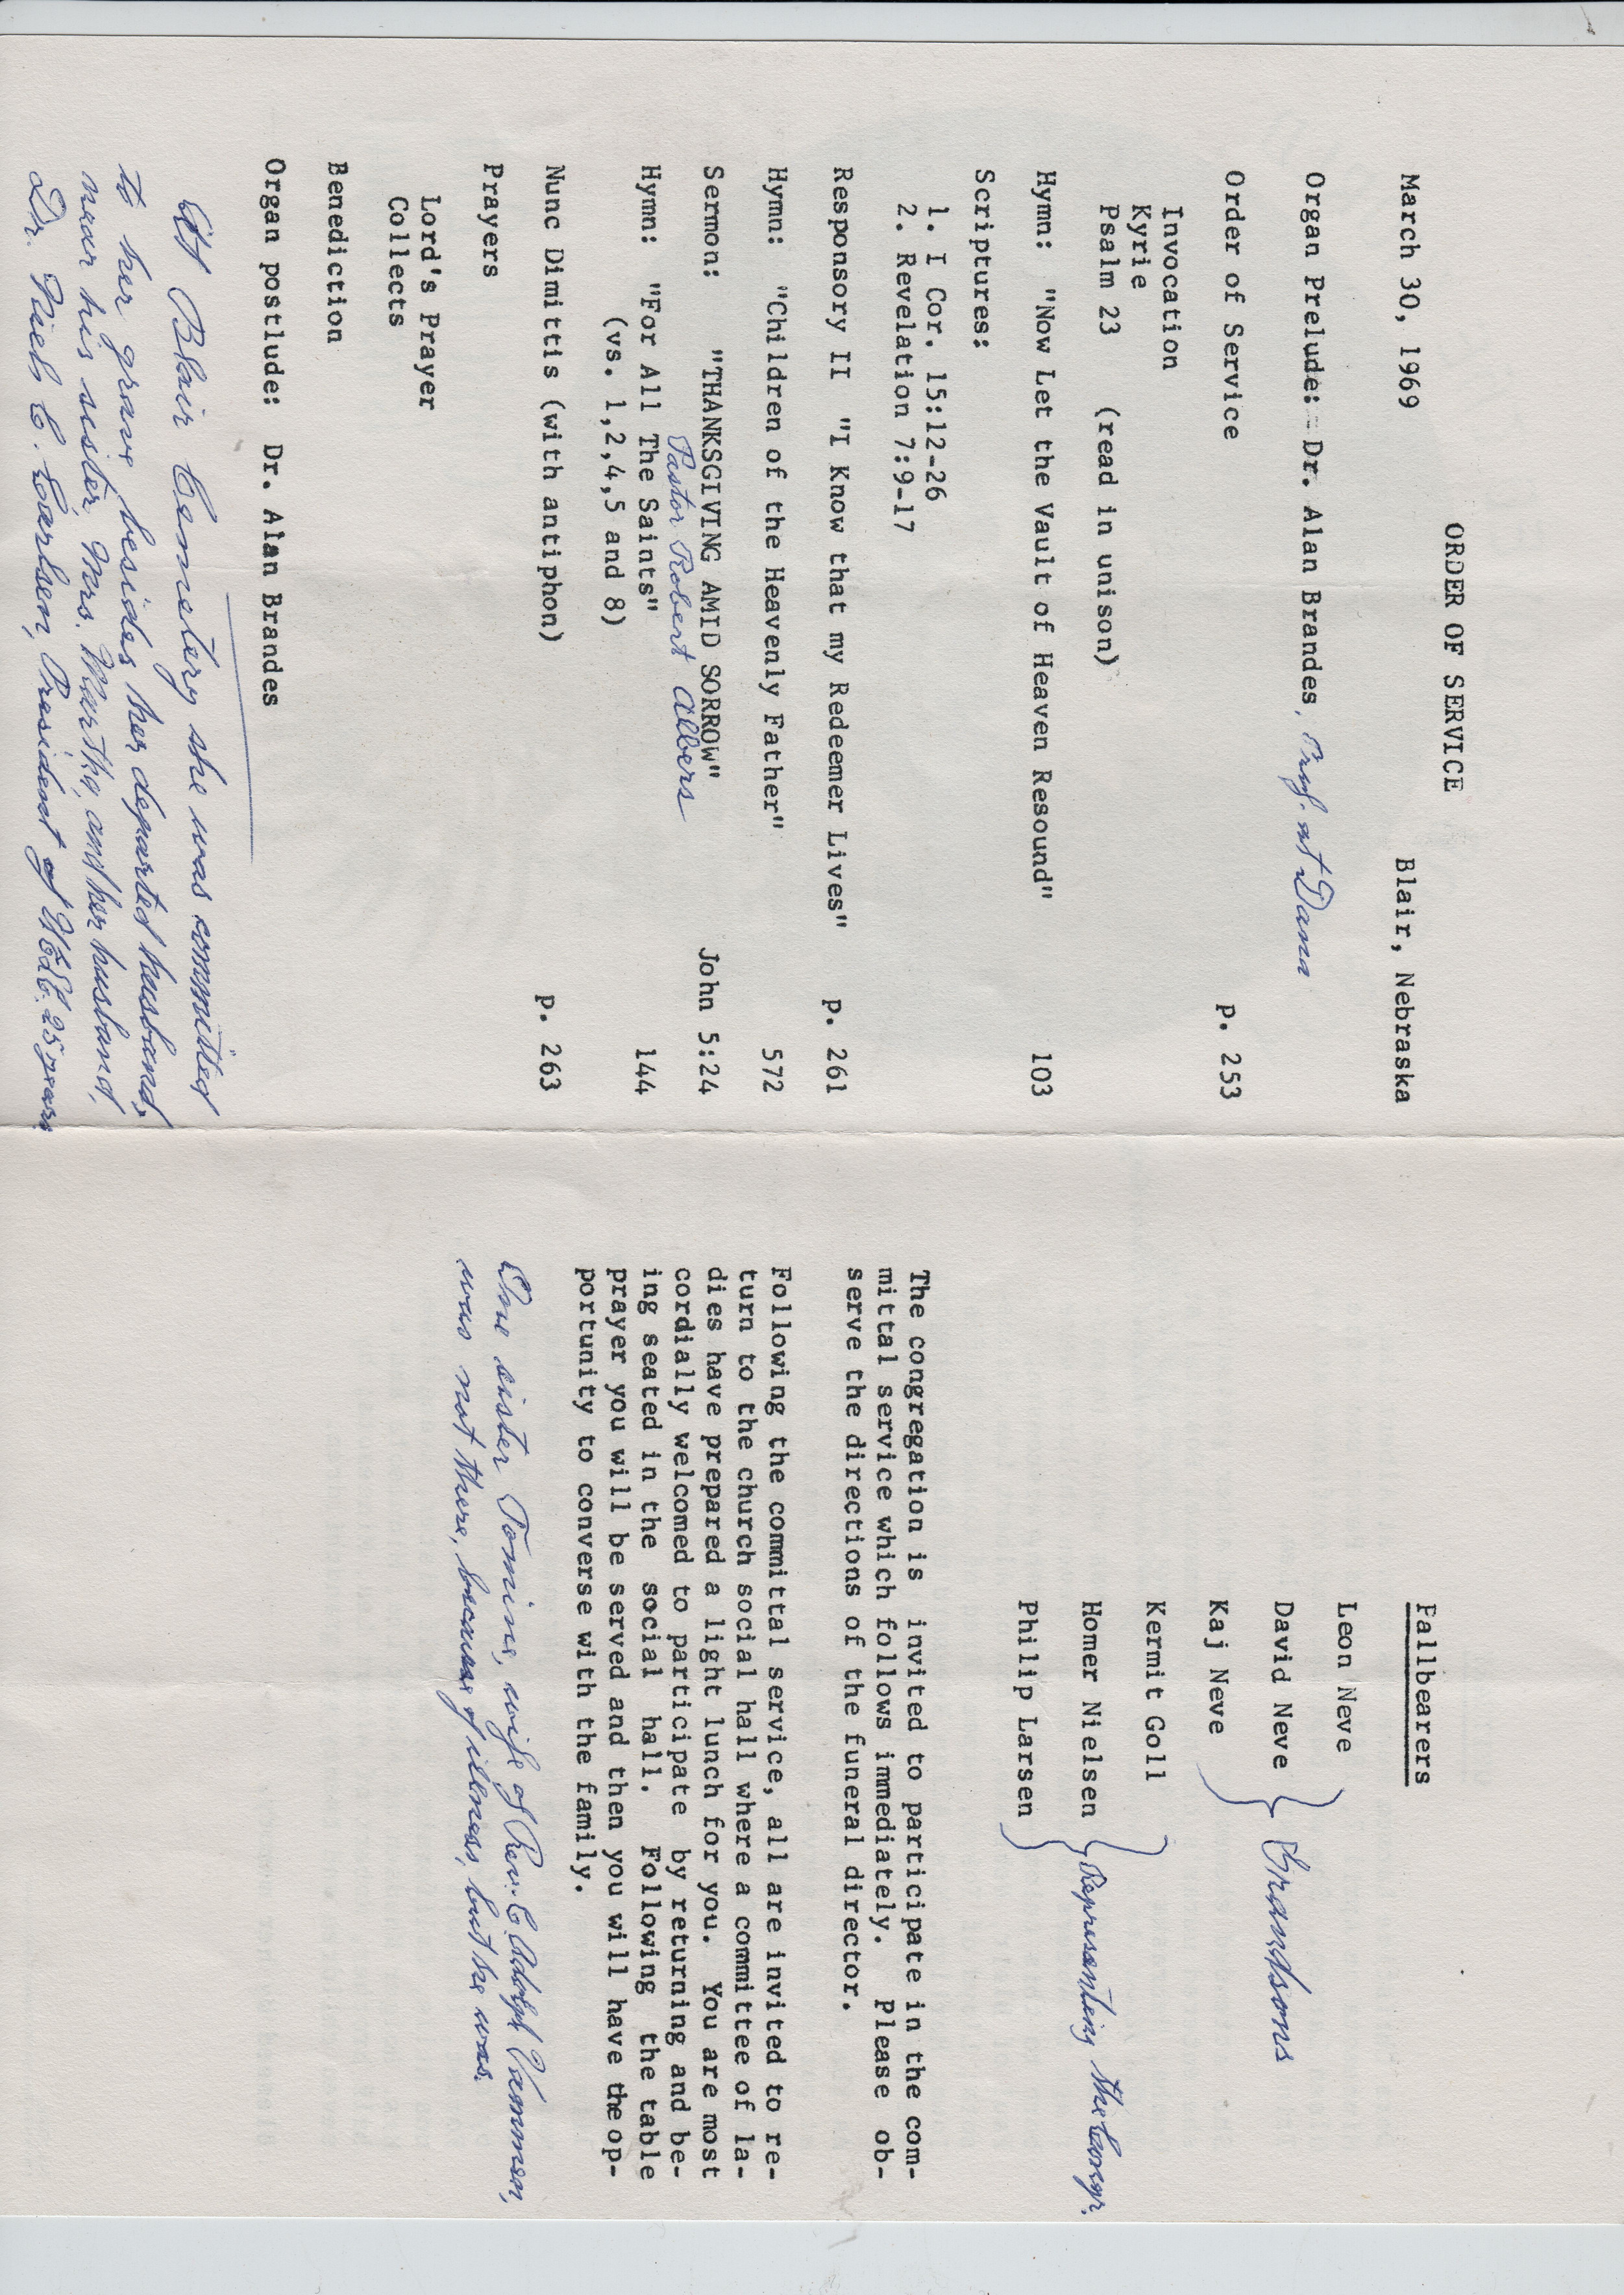 ORDER OF SERVICE
March 30, 1969 Blair, Nebraska
Organ Prelude: Dr. Alan Brandes, Prof. at Dana
Order of Service p. 253
Invocation
Kyrie
Psalm 23 (read in unison)
Hymn: "Now Let the Vault of Heaven Resound" 103
Scriptures:
1. I Cor. 15:12-26
2. Revelation 7:9-17
Responsory II "I Know that my Redeemer Lives" p. 261
Hymn: "Children of the Heavenly Father" 572
Sermon: "THANKSGIVING AMID SORROW" John 5:24
Pastor Robert Albers
Hymn: "For All The Saints" 144
(vs. 1,2,4,5 and 8)
Nunc Dimittis (with antiphon) p. 263
Prayers
Lord's Prayer
Collects
Benediction
Organ postlude: Dr. Alan Brandes
At Blair Cemetery she was committed
to her grave besides her departed husband,
near his sister, Mrs. Martha, and her husband,
Dr. Niels C. Carlsen, President of 25 years.
Pallbearers
Leon Neve
David Neve Grandsons
Kaj Neve
Kermit Goll
Homer Nielsen Representing the Congr.
Philip Larsen
The congregation is invited to participate in the com-
mittal service which follows immediately. Please ob-
serve the directions of the funeral director.
Following the committal service, all are invited to re-
turn to the church social hall where a committee of la-
dies have prepared a light lunch for you. You are most
cordially welcomed to participate by returning and be-
ing seated in the social hall. Following the table
prayer you will be served and then you will have the op-
portunity to converse with the family.
One sister Tomine, wife of Rev. C. Adolph Vammen,
was not there, because of illness, but he was.